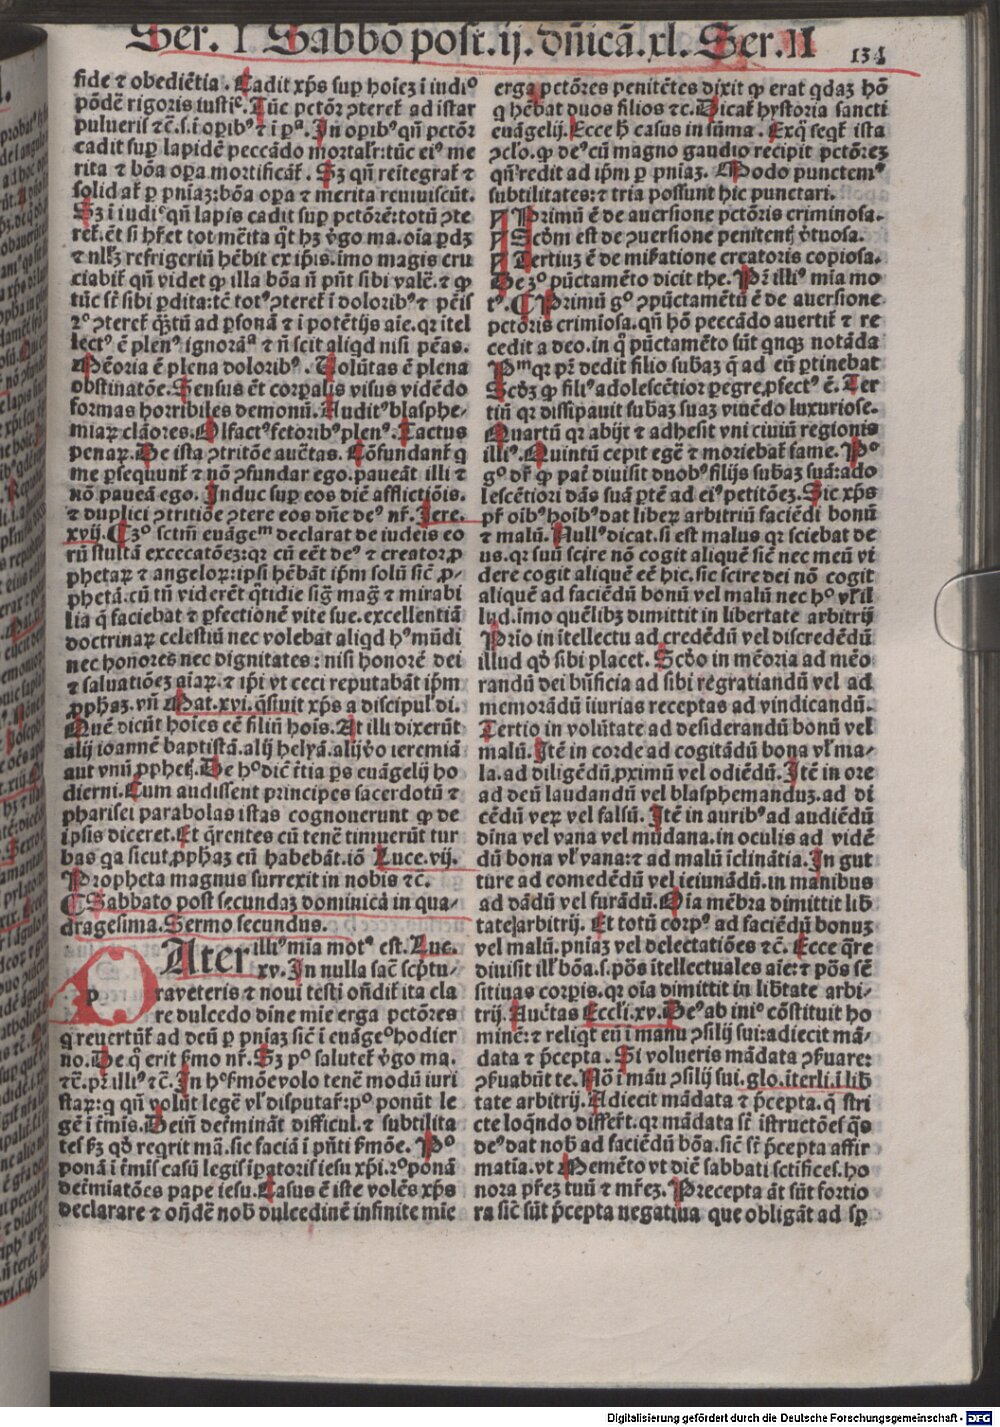 Ser. I Sabbō post .ij. dn̄icā .xl. Ser. II 134
fide ⁊ obediētia. Cadit xp̄s sup hoiez ī iudi⁹
pōdē rigoris iustiᵉ. Tūc pctōr ɔteret̄ ad istar
pulueris ⁊c̄. s. ī opib⁹ ⁊ ī pᵃ. In opib⁹ qn̄ pctōr
cadit sup lapidē peccādo mortalr̄: tūc ei⁹ me
rita ⁊ bōa oꝑa mortificāt̄. Sꝫ qn̄ reitegrat̄ ⁊
solidat̄ ꝑ pn̄iaz: bōa oꝑa ⁊ merita reuiuiscūt.
Sꝫ ī iudi⁹ qn̄ lapis cadit sup pctōrē: totū ɔte
ret̄. ēt si hr̄et tot mēita q̄t hꝫ v̄go ma. oīa ꝑdꝫ
⁊ nllꝫ refrigeriū hēbit ex ip̄is. imo magis cru
ciabit̄ qn̄ videt ꝙ illa bōa n̄ pn̄t sibi valē. ⁊ ꝙ
tūc st̄ sibi ꝑdita: tē tot⁹ ɔteret̄ ī dolorib⁹ ⁊ pēis
2º ɔteret̄ q̄ꝫtū ad ꝑsonā ⁊ ī potētijs aīe. qr ītel
lect⁹ ē plen⁹ ignorāᵃ ⁊ n̄ scit aliqd nisi pēas.
Mēoria ē plena dolorib⁹. Volūtas ē plena
obstinatōe. Sensus ēt corꝑalis visus vidēdo
formas horribiles demonū. Audit⁹ blasphe-
miaꝝ clāores. Olfact⁹ fetorib⁹ plen⁹. Tactus
penaꝝ. De ista ɔtritōe auc̄tas. Cōfundant̄ q̄
me ꝑsequunt̄ ⁊ nō ɔfundar ego. paueāt illi ⁊
nō paueā ego. Induc sup eos diē afflictiōis.
⁊ duplici ɔtritiōe ɔtere eos dn̄e de⁹ nr̄. Jere.
xvij. ¶ 3º sctm̄ euāgeᵐ declarat de iudeis eo
rū stultā excecatōez: qr cū eēt de⁹ ⁊ creator ꝓ
phetaꝝ ⁊ angeloꝝ: ipsi hēbāt ip̄m solū sic̄ ꝓ-
phetā. cū tn̄ viderēt q̄tidie siḡ maḡ ⁊ mirabi
lia q̄ faciebat ⁊ ꝑfectionē vite sue. excellentiā
doctrinaꝝ celestiū nec volebat aliqd h⁹ mūdi
nec honores nec dignitates: nisi honorē dei
⁊ saluatiōez aīaꝝ. ⁊ ip̄i vt ceci reputabāt ip̄m
ꝓphaz. vn̄ Mat. xvi. q̄stuit xp̄s a discipul⁹ di.
Quē dicūt hoīes eē filiū hoīs. At illi dixerūt
alij ioannē baptistā. alij helyā. alij v̄o ieremiā
aut vnū ꝓphetꝫ. De hº dic̄ t̄tia ps euāgelij ho
dierni. Cum audissent principes sacerdotū ⁊
pharisei parabolas istas cognouerunt ꝙ de
ipsis diceret. Et q̄rentes eū tenē timuerūt tur
bas qa sicut ꝓphaz eū habebāt. iō Luce. vij.
Propheta magnus surrexit in nobis ⁊c̄.
¶ Sabbato post secundaz dominicā in qua-
dragesima. Sermo secundus.
PAter illi⁹ mīa mot⁹ est. Luc.
xv. In nulla sac̄ sc̄ptu-
ra veteris ⁊ noui testi ōn̄dit̄ ita cla
re dulcedo diīne mīe erga pctōres
q̄ reuertūt̄ ad deū ꝑ pn̄iaz sic̄ ī euāgeº hodier
no. De q̄ erit s̄mo nr̄. Sꝫ pº salutet̄ v̄go ma.
⁊c̄. pr̄ illi⁹ ⁊c̄. In hº s̄mōe volo tenē modū iuri
staꝝ: q̄ qn̄ volūt legē vl̄ disputar̄: pº ponūt le
gē ī t̄mīs. Deīn̄ det̄mināt difficul. ⁊ subtilita
tes sꝫ qd̄ reqrit mā. sic faciā ī pn̄ti s̄mōe. Pº
ponā ī t̄mis casū legis īꝑatoris iesu xp̄i. 2º ponā
det̄miatōes pape iesu. Casus ē iste volēs xp̄s
declarare ⁊ ōn̄dē nob̄ dulcedinē infinite mīe
erga pctōres penitētes dixit ꝙ erat qdaz hō
q̄ hēbat duos filios ⁊c. Dicat̄ hystoria sancti
euāgelij. Ecce h̄ casus in sūma. Exq̄ seqt̄ ista
ɔclo. ꝙ de⁹ cū magno gaudio recipit pctōrez
qn̄ redit ad ip̄m ꝑ pn̄iaz. Modo punctem⁹
subtilitates: ⁊ tria possunt hic punctari.
¶ Primū ē de auersione pctōris criminosa.
¶ Scd̄m est de ɔuersione penitentꝫ v̄tuosa.
¶ Tertiuz ē de mis̄atione creatoris copiosa.
De 3º pūctamēto dicit the. Pr̄ illi⁹ mīa mo
t⁹. ¶ Primū gº ɔpūctamētū ē de auersione
pctōris crimiosa. qn̄ hō peccādo auertit̄ ⁊ re
cedit a deo. in q̄ pūctamēto sūt qnqꝫ notāda
Pᵐ qr pr̄ dedit filio subaz q̄ ad eū ꝑtinebat
Scd̄ꝫ ꝙ fili⁹ adolescētior ꝑegre ꝓfect⁹ ē. Ter
tiū qr dissipauit subaz suaz viuēdo luxuriose.
Quartū qr abijt ⁊ adhesit vni ciuiū regionis
illi⁹. Quintū cepit egē ⁊ moriebat̄ fame. Pº
gº dr̄ ꝙ pat̄ diuisit duob⁹ filijs subaz suā: ado
lescētiori dās suā ꝑtē ad ei⁹ petitōez. Sic xp̄s
pr̄ oib⁹ hoib⁹ dat liberꝝ arbitriū faciēdi bonū
⁊ malū. Null⁹ dicat. si est malus qr sciebat de
us. qr suū scire nō cogit aliquē sic̄ nec meū vi
dere cogit aliquē eē hic. sic scire dei nō cogit
aliquē ad faciēdū bonū vel malū nec hº vl̄ il
lud. imo quēlibꝫ dimittit in libertate arbitrij
Prio in ītellectu ad credēdū vel discredēdū
illud qd̄ sibi placet. Scd̄o in mēoria ad mēo
randū dei bn̄ficia ad sibi regratiandū vel ad
memorādū iiurias receptas ad vindicandū.
Tertio in volūtate ad desiderandū bonū vel
malū. Itē in corde ad cogitādū bona vl̄ ma-
la. ad diligēdū ꝓximū vel odiēdū. Itē in ore
ad deū laudandū vel blasphemanduz. ad di
cēdū veꝝ vel falsū. Itē in aurib⁹ ad audiēdū
diīna vel vana vel mūdana. in oculis ad vidē
dū bona vl̄ vana: ⁊ ad malū īclinātia. In gut
ture ad comedēdū vel ieiunādū. in manibus
ad dādū vel furādū. Oīa mēbra dimittit lib̄
tate arbitrij. Et totū corp⁹ ad faciēdū bonuz
vel malū. pn̄iaz vel delectatiōes ⁊c̄. Ecce q̄re
diuisit ill̄ bōa. s. pōs ītellectuales aīe: ⁊ pōs sē
sitiuas corpis. qr oīa dimittit in lib̄tate arbi-
trij. Auc̄tas Eccli. xv. De⁹ ab ini⁹ cōstituit ho
minē: ⁊ reliqt eū ī manu ɔsilij sui: adiecit mā-
data ⁊ p̄cepta. Si volueris mādata ɔs̄uare:
ɔs̄uabūt te. Nō ī māu ɔsilij sui. glo. īterli. ī lib̄
tate arbitrij. Adiecit mādata ⁊ p̄cepta. q̄ stri
cte loqn̄do differt̄. qr mādata st̄ īstructōes q̄s
de⁹ dat nob̄ ad faciēdū bōa. sic̄ st̄ p̄cepta affir
matīa. vt Memēto vt diē sabbati sctifices. ho
nora pr̄ez tuū ⁊ mr̄ez. Precepta āt sūt fortio
ra sic̄ sūt p̄cepta negatiua que obligāt ad sꝑ
Digitalisierung gefördert durch die Deutsche Forschungsgemeinschaft - DFG